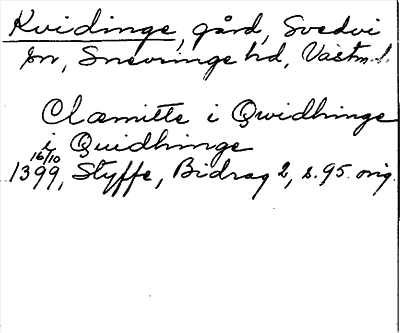 Kvidinge, gård, Svedvi
sn, Snevringe hd, Västm.l.
Clæmitte i Qwidhinge
i Quidhinge
16/10
1399, Styffe, Bidrag 2, s. 95. orig.